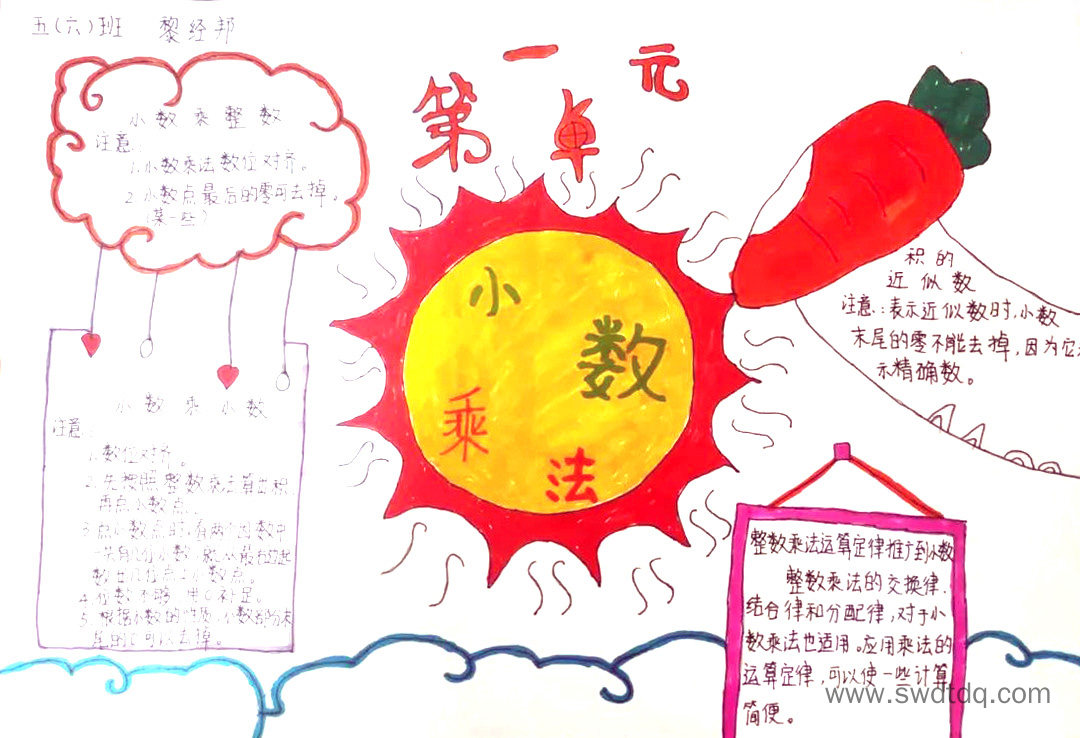 五(六)班 黎经邦
第一单元
小数乘法
小数乘整数
注意:
1.小数乘法数位对齐。
2.小数点最后的零可去掉。
(某一些)
小数乘小数
注意:
1.数位对齐。
2.先按照整数乘法算出积,
再点小数点。
3.点小数点时,看两个因数中
一共有几位小数,就从最右边起
数出几位点上小数点。
4.位数不够,用0补足。
5.根据小数的性质,小数部分末
尾的0可以去掉。
积的
近似数
注意:表示近似数时,小数
末尾的零不能去掉,因为它
示精确数。
整数乘法运算定律推广到小数
整数乘法的交换律、
结合律和分配律,对于小
数乘法也适用。应用乘法的
运算定律,可以使一些计算
简便。
www.swdtdq.com